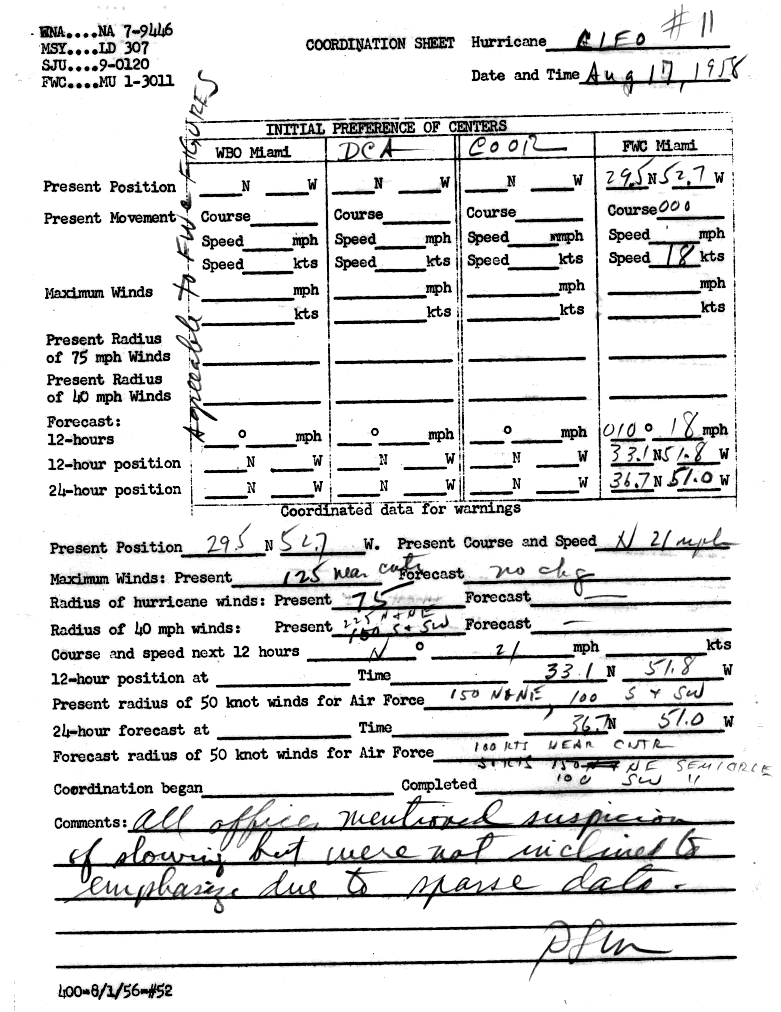 WNA....NA 7-9446
MSY....LD 307
SJU....9-0120
FWC....MU 1-3011
COORDINATION SHEET Hurricane CLEO #11
Date and Time Aug 17, 1958
Agreeable to FWC FIGURES
INITIAL PREFERENCE OF CENTERS
WBO Miami DCA COOR FWC Miami
Present Position ___N ___W ___N ___W ___N ___W 29.5 N 52.7 W
Present Movement Course Course Course Course 000
Speed mph Speed mph Speed mmph Speed mph
Speed kts Speed kts Speed kts Speed 18 kts
Maximum Winds mph mph mph mph
kts kts kts kts
Present Radius
of 75 mph Winds
Present Radius
of 40 mph Winds
Forecast:
12-hours ° mph ° mph ° mph 010 ° 18 mph
12-hour position N W N W N W 33.1 N 51.8 W
24-hour position N W N W N W 36.7 N 51.0 W
Coordinated data for warnings
Present Position 29.5 N 52.7 W. Present Course and Speed N 21 mph
Maximum Winds: Present 125 near cntr Forecast no chg
Radius of hurricane winds: Present 75 Forecast —
Radius of 40 mph winds: Present 225 N & NE 150 S & SW Forecast —
Course and speed next 12 hours N ° 21 mph kts
12-hour position at Time 33.1 N 51.8 W
Present radius of 50 knot winds for Air Force 150 N & NE, 100 S & SW
24-hour forecast at Time 36.7 N 51.0 W
Forecast radius of 50 knot winds for Air Force 100 KTS NEAR CNTR
50 KTS 150 NE SEMICIRCLE
100 SW "
Coordination began Completed
Comments: All offices mentioned suspicion
of slowing but were not inclined to
emphasize due to sparse data.
400-8/1/56-#52